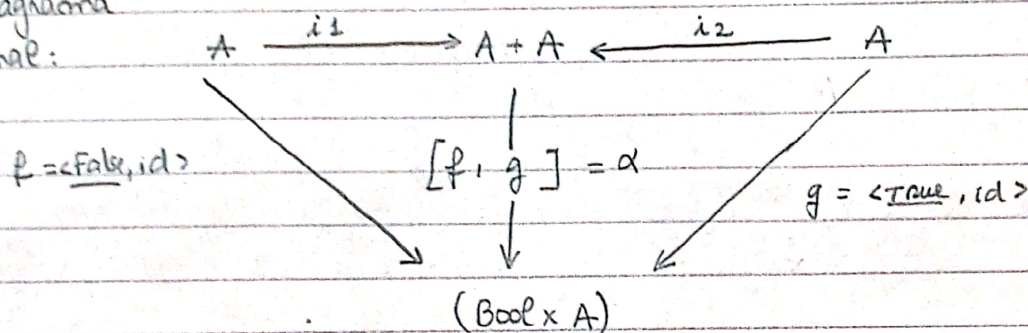 agrama
nal:
A i1 A + A i2 A
f = <False, id> [f, g] = α
g = <True, id>
(Bool x A)